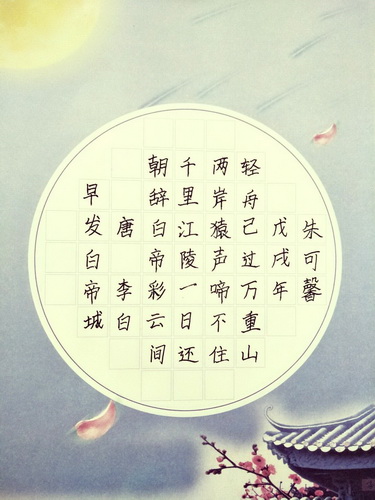 早发白帝城
唐 李白
朝辞白帝彩云间
千里江陵一日还
两岸猿声啼不住
轻舟已过万重山
戊戌年
朱可馨